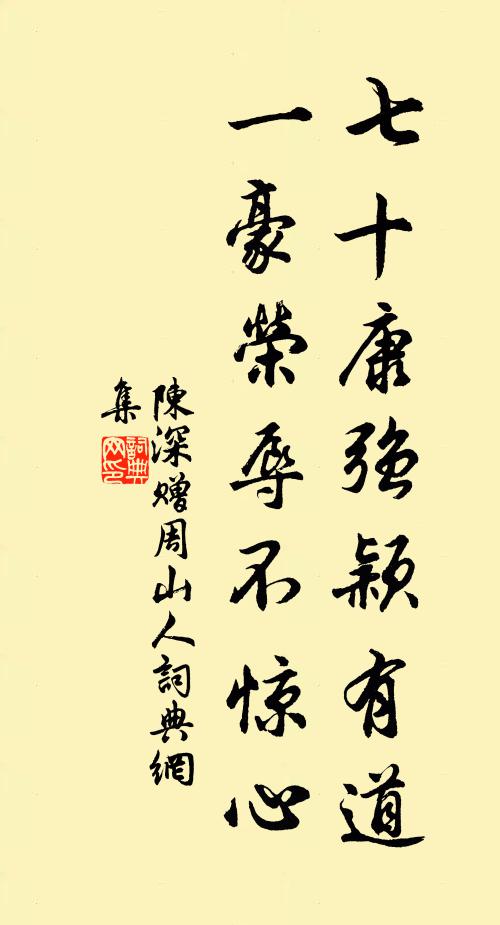 七十康強穎有道
一豪榮辱不惊心
陳深贈周山人詞典網
集
詞典网印